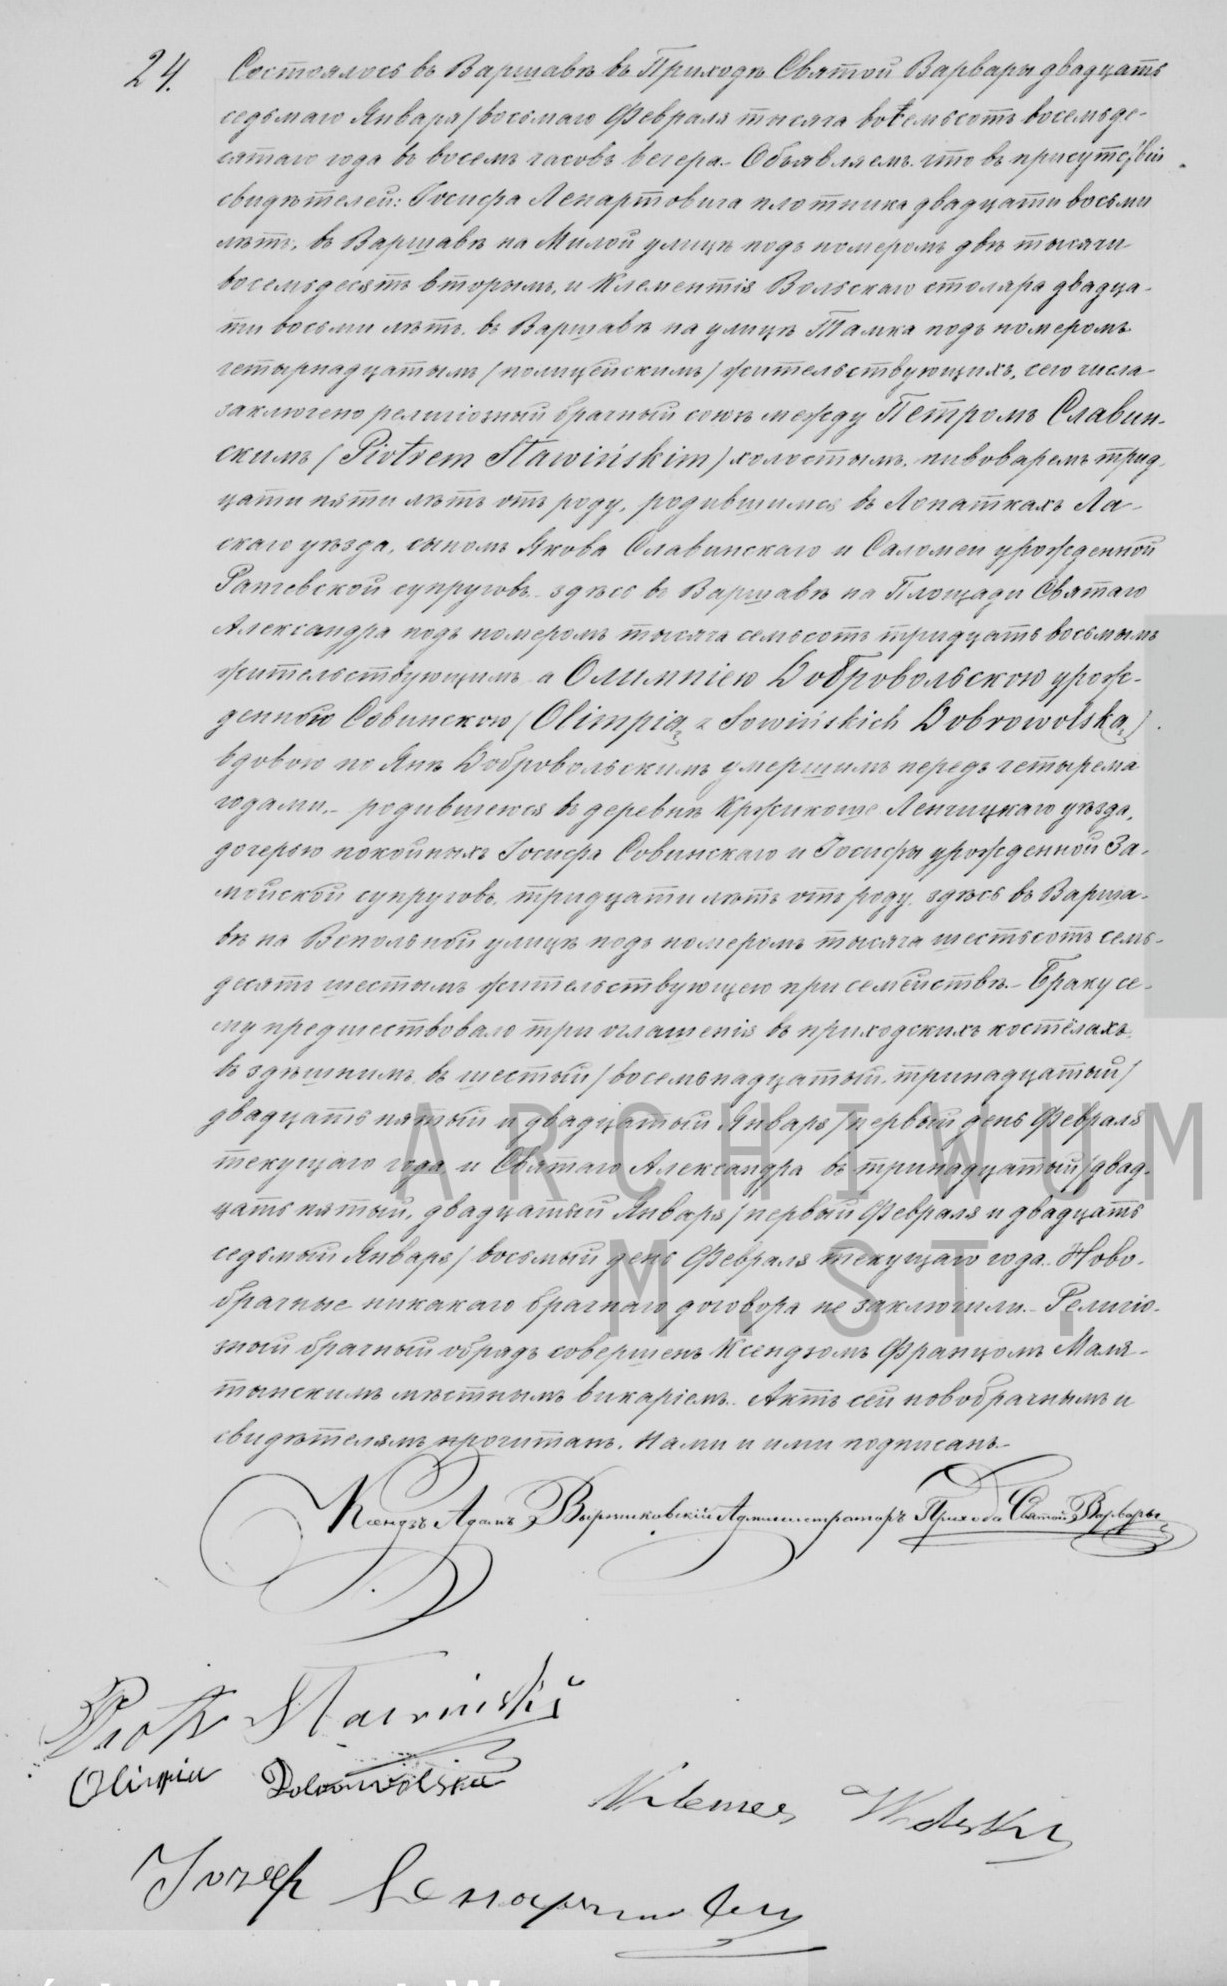 24. Состоялось въ Варшавѣ въ Приходѣ Святой Варвары двадцать
седьмаго Января/восьмаго Февраля тысяча восемьсотъ восемьде-
сятаго года въ восемь часовъ вечера.- Объявляемъ что въ присутствіи
свидѣтелей: Іосифа Ленартовича плотника двадцати восьми
лѣтъ, въ Варшавѣ на Милой улицѣ подъ номеромъ двѣ тысячи
восемьдесятъ вторымъ, и Клементія Вольскаго столяра двадца-
ти восьми лѣтъ, въ Варшавѣ на улицѣ Тамка подъ номеромъ
четырнадцатымъ /полицейскимъ/ жительствующихъ, сего числа
заключено религіозный брачный союзъ между Петромъ Славин-
скимъ (Piotrem Sławińskim) холостымъ, пивоваромъ трид-
цати пяти лѣтъ отъ роду, родившимся въ Лопаткахъ Ла-
скаго уѣзда, сыномъ Якова Славинскаго и Саломеи урожденной
супруговъ, здѣсь въ Варшавѣ на Площади Святаго
Александра подъ номеромъ тысяча семьсотъ тридцать восьмымъ
жительствующимъ а Олимпіею Добровольскою урож-
денною Совинскою (Olimpią z Sowińskich Dobrowolską)
вдовою по Янѣ Добровольскимъ умершимъ передъ четырема
годами.- родившеюся въ деревнѣ Ленчицкаго уѣзда,
дочерью покойныхъ Іосифа Совинскаго и Іосифы урожденной За-
мойской супруговъ, тридцати лѣтъ отъ роду, здѣсь въ Варша-
вѣ на Вспольной улицѣ подъ номеромъ тысяча шестьсотъ семь-
десятъ шестымъ жительствующею при семействѣ.- Браку се-
му предшествовало три оглашенія въ приходскихъ костёлахъ:
въ здѣшнимъ, въ шестый/восемьнадцатый, тринадцатый/
двадцать пятый и двадцатый Января/первый день Февраля
текущаго года, и Святаго Александра въ тринадцатый/двад-
цать пятый, двадцатый Января/первый Февраля и двадцать
седьмый Января/восьмый день Февраля текущаго года.- Ново-
брачные никакаго брачнаго договора не заключили.- Религіо-
зный брачный обрядъ совершенъ Ксендзомъ Францомъ Маля-
тынскимъ мѣстнымъ викаріемъ.- Актъ сей новобрачнымъ и
свидѣтелямъ прочитанъ, Нами и ими подписанъ.-
Ксендзъ Адамъ Администраторъ Прихода Святой Варвары
Piotr Sławiński
Olimpia Dobrowolska
Klemes Wolski
Jozef
ARCHIWUM
M. ST.